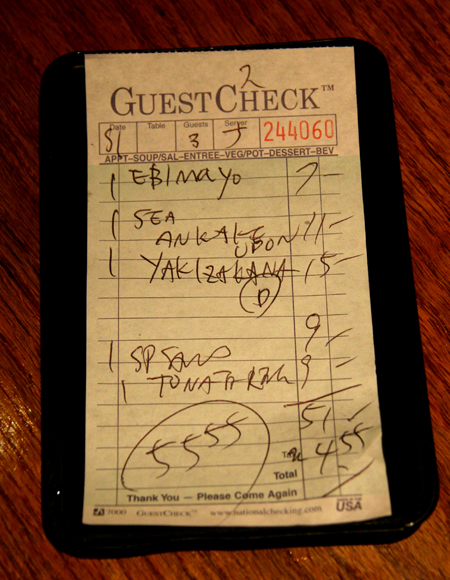 2
GUESTCHECK™
Date Table Guests Server
3 J 244060
APPT-SOUP/SAL-ENTREE-VEG/POT-DESSERT-BEV
1 EBIMAYO 7-
1 SEA
ANKAKE 11-
UDON
1 YAKIZAKANA 15-
D
9-
1 SP
1 9-
51-
5555 Tax 4.55
Total
Thank You — Please Come Again
7000 GUESTCHECK™ www.nationalchecking.com MADE IN THE USA